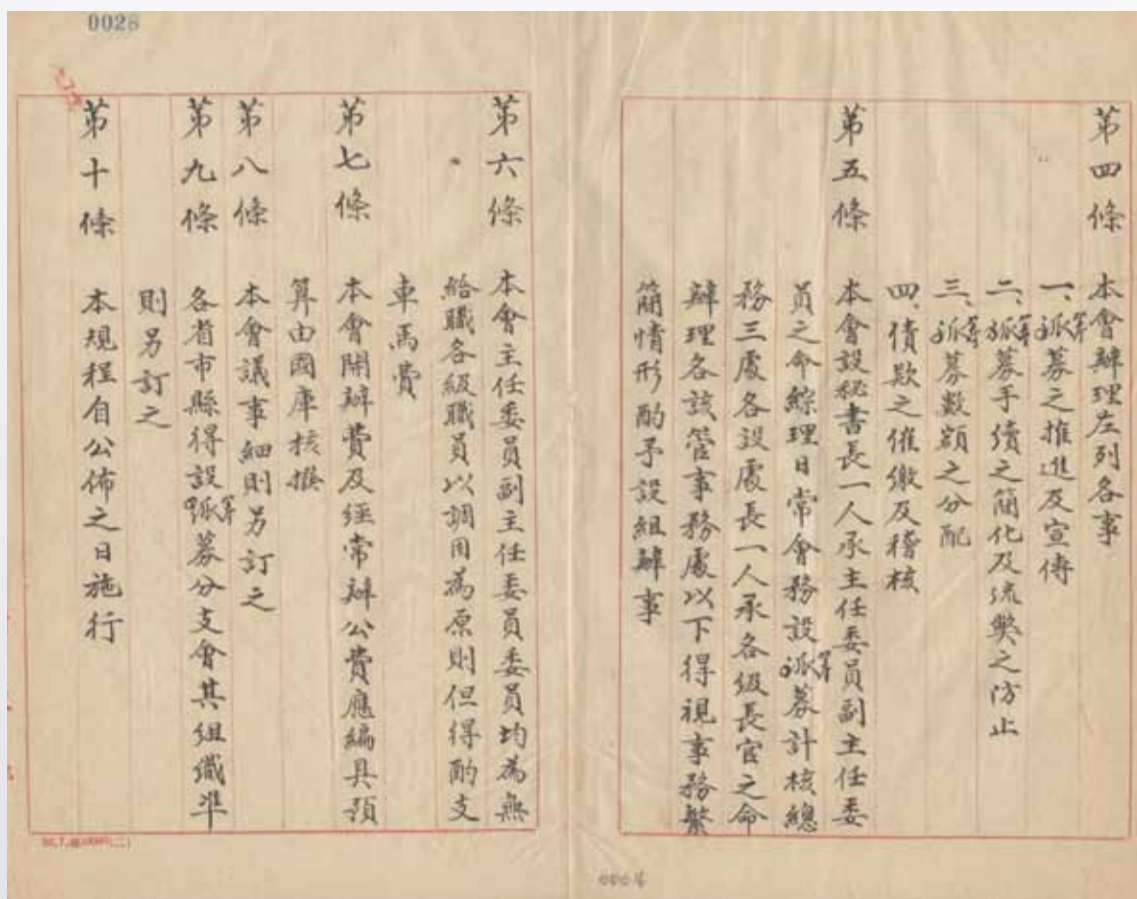 0028
第四條 本會辦理左列各事
一、筹募之推進及宣傳
二、筹募手續之簡化及流弊之防止
三、筹募數額之分配
四、債款之催繳及稽核
第五條 本會設秘書長一人承主任委員副主任委
員之命綜理日常會務設筹募計核總
務三處各設處長一人承各級長官之命
辦理各該管事務處以下得視事務繁
簡情形酌予設組辦事
第六條 本會主任委員副主任委員委員均為無
給職各級職員以調用為原則但得酌支
車馬費
第七條 本會開辦費及經常辦公費應編具預
算由國庫核撥
第八條 本會議事細則另訂之
第九條 各省市縣得設筹募分支會其組織準
則另訂之
第十條 本規程自公佈之日施行
0004